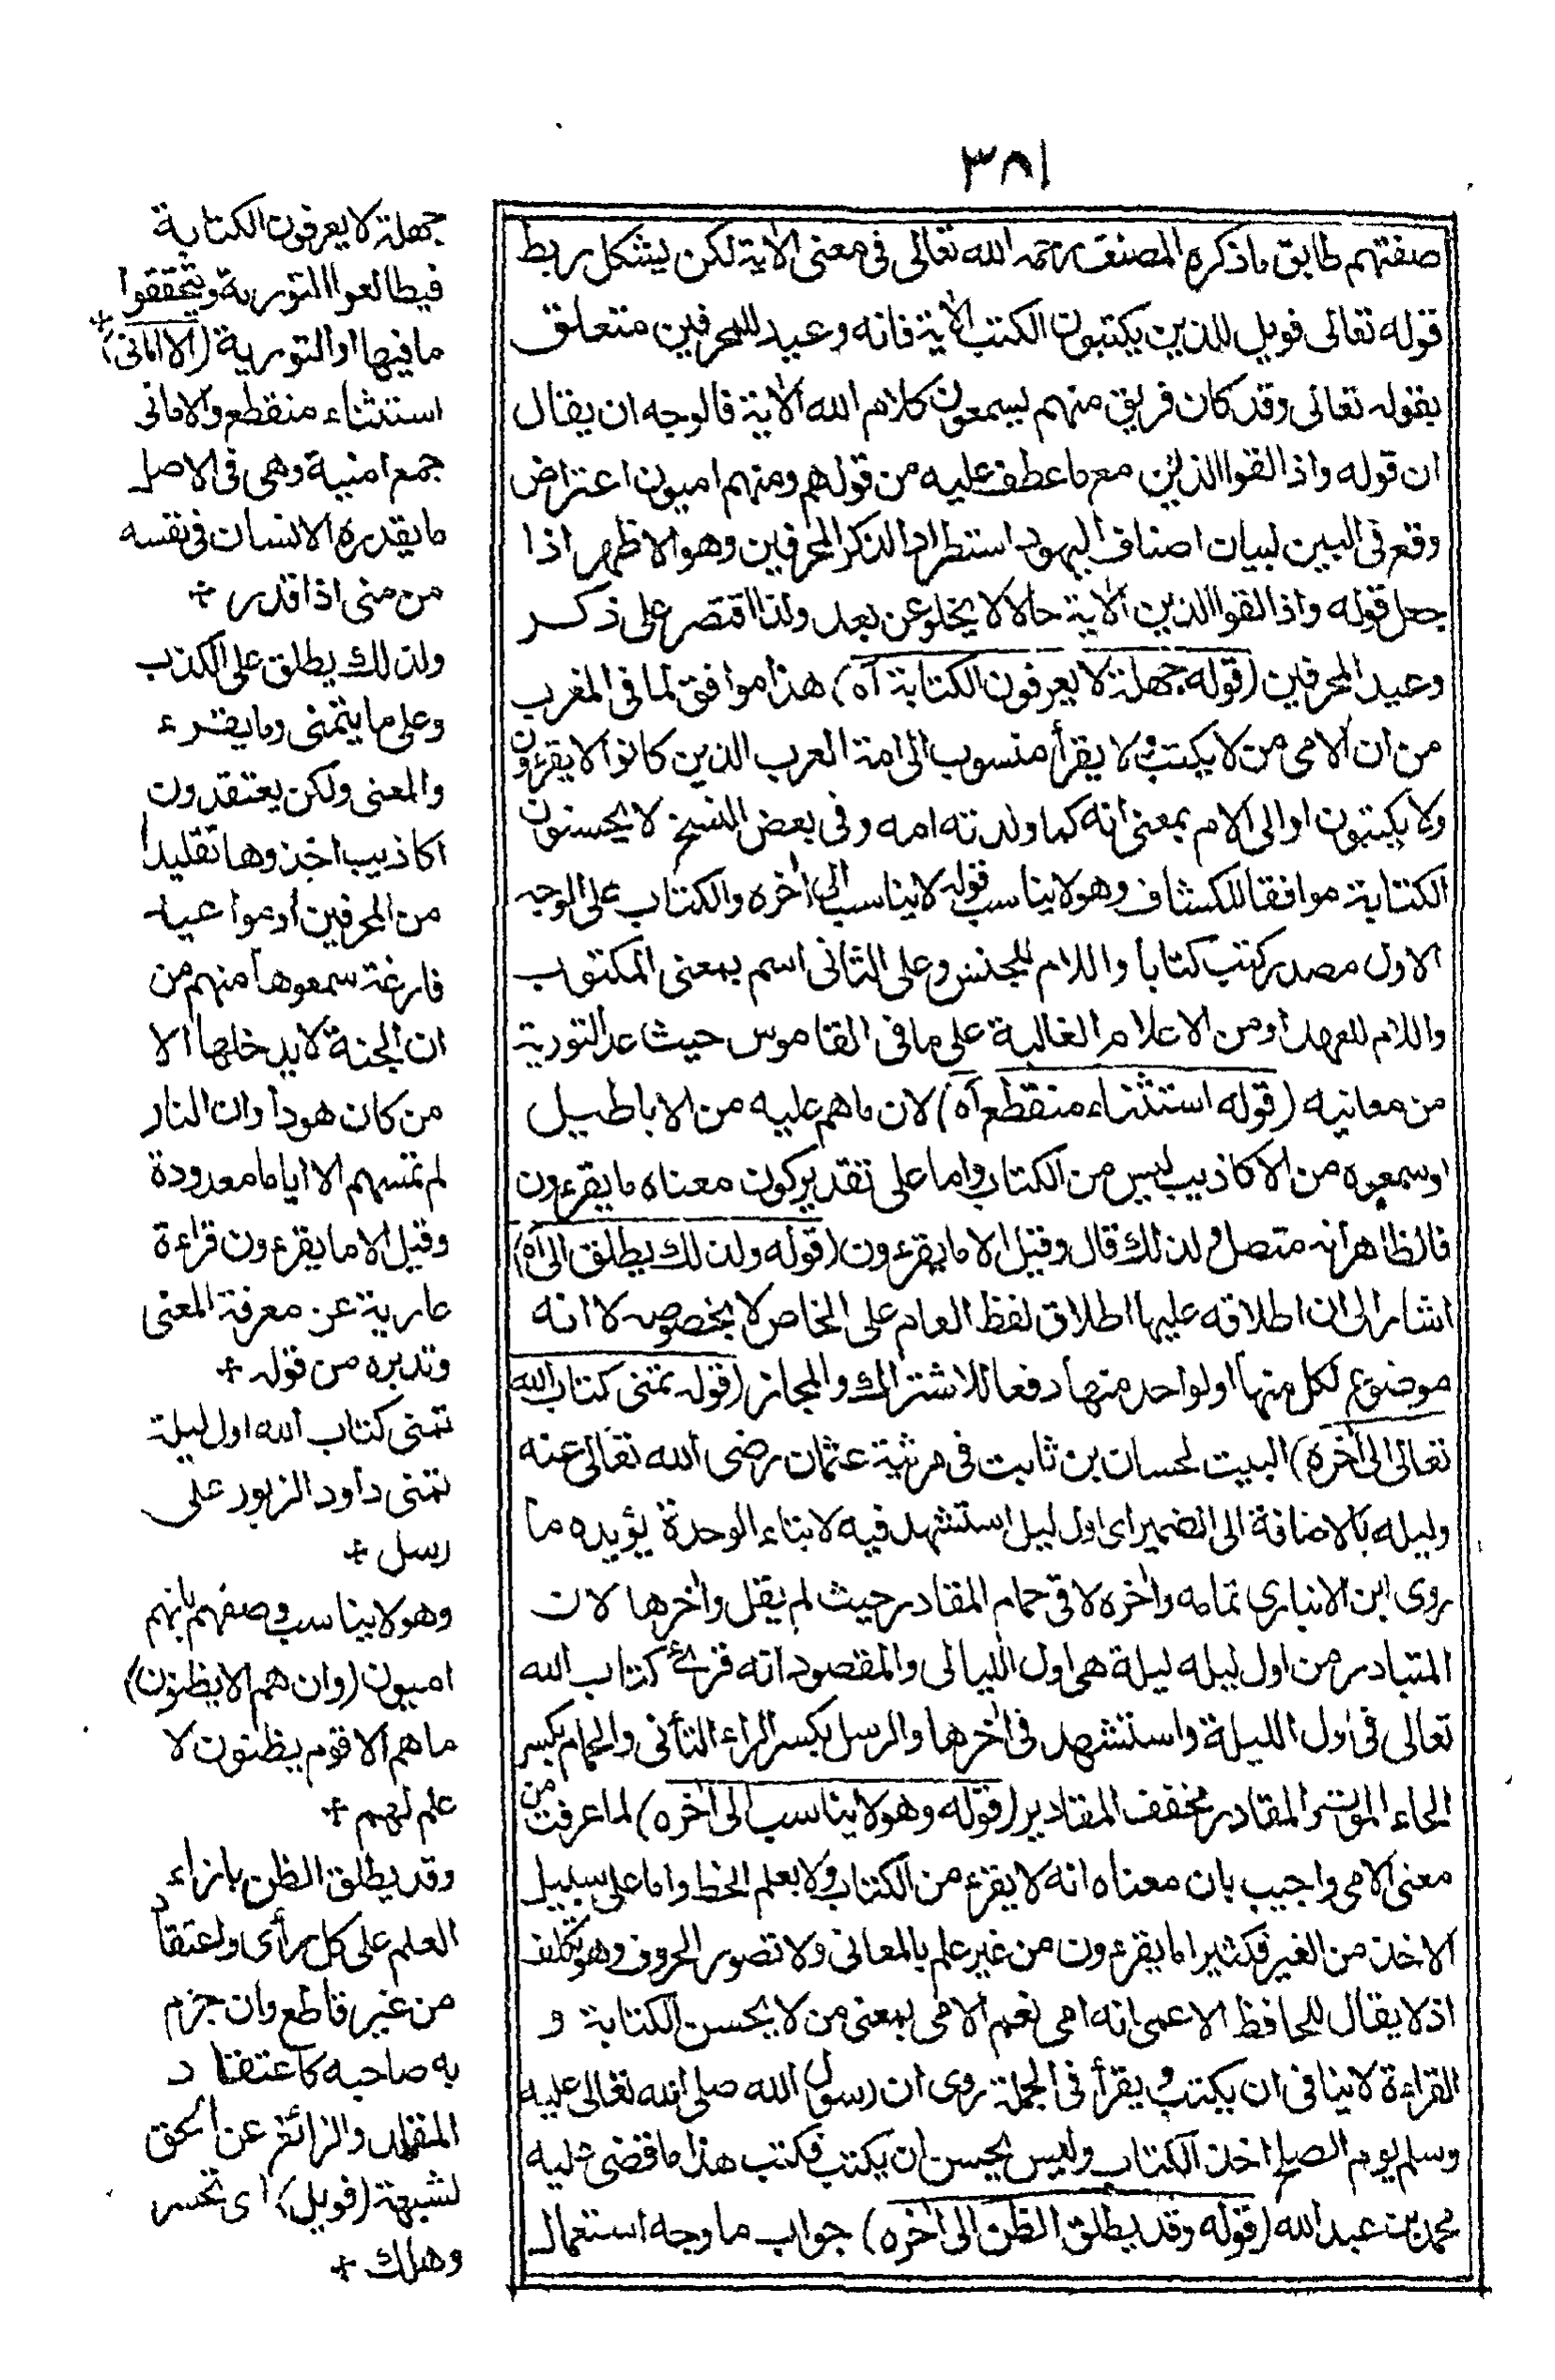 ٣٨١
صفتهم طابق ماذكره المصنف رحمه الله تعالى فى معنى الاية لكن يشكل ربط
قوله تعالى فويل للذين يكتبون الكتب الاية فانه وعيد للمحرفين متعلق
بقوله تعالى وقد كان فريق منهم يسمعون كلام الله الاية فالوجه ان يقال
ان قوله واذا لقوا الذين مع ماعطف عليه من قولهم ومنهم اميون اعتراض
وقع فى البين لبيان اصناف اليهود استطرادا لذكر المحرفين وهو الاظهر اذا
جعل قوله واذا لقوا الذين الاية حالا لا يخلو عن بعد ولذا اقتصر على ذكر
وعيد المحرفين (قوله جهلة لا يعرفون الكتابة آه) هذا موافق لما فى المغرب
من ان الامى من لا يكتب ولا يقرأ منسوب الى امة العرب الذين كانوا لا يقرءون
ولا يكتبون او الى الام بمعنى انه كما ولدته امه وفى بعض النسخ لا يحسنون
الكتابة موافقا للكشاف وهو لا يناسب قوله لا يناسب الى آخره والكتاب على الوجه
الاول مصدر كتب كتابا واللام للجنس وعلى الثانى اسم بمعنى المكتوب
واللام للعهد او من الاعلام الغالبة على ما فى القاموس حيث عد التورية
من معانيه (قوله استثناء منقطع آه) لان ماهم عليه من الاباطيل
اوسمعوه من الاكاذيب ليس من الكتاب واما على تقدير كون معناه ما يقرءون
فالظاهر انه متصل ولذلك قال وقيل الا ما يقرءون (قوله ولذلك يطلق الى آه)
اشار الى ان اطلاقه عليها اطلاق لفظ العام على الخاص لا بخصوصه لا انه
موضوع لكل منها او لواحد منها دفعا للاشتراك والمجاز (قوله تمنى كتاب الله
تعالى الى آخره) البيت لحسان بن ثابت فى مرثية عثمان رضى الله تعالى عنه
وليله بالاضافة الى الضمير اى اول ليل استشهد فيه لا بتاء الوحدة يؤيده ما
روى ابن الانبارى تمامه وآخره لاقى حمام المقادر حيث لم يقل وآخرها لان
المتبادر من اول ليله ليلة هى اول الليالى والمقصود انه قرئ كتاب الله
تعالى فى اول الليلة واستشهد فى آخرها والرسل بكسر الراء التأنى والحمام بكسر
الحاء الموت والمقادر مخفف المقادير (قوله وهو لا يناسب الى آخره) لما عرفت من
معنى الامى واجيب بان معناه انه لا يقرء من الكتاب ولا يعلم الخط واما على سبيل
الاخذ من الغير فكثيرا ما يقرءون من غير علم بالمعانى ولا تصور الحروف وهو تكلف
اذ لا يقال للحافظ الاعمى انه امى نعم الامى بمعنى من لا يحسن الكتابة و
القراءة لا ينافى ان يكتب ويقرأ فى الجملة روى ان رسول الله صلى الله تعالى عليه
وسلم يوم الصلح اخذ الكتاب وليس يحسن ان يكتب فكتب هذا ما قضى عليه
محمد بن عبد الله (قوله وقد يطلق الظن الى آخره) جواب ما وجه استعمال
جهلة لا يعرفون الكتابة
فيطالعوا التورية ويتحققوا
ما فيها او التورية (الا امانى)+
استثناء منقطع والامانى
جمع امنية وهى فى الاصل
ما يقدره الانسان فى نفسه
من منى اذا قدر +
ولذلك يطلق على الكذب
وعلى ما يتمنى وما يقرء
والمعنى ولكن يعتقدون
اكاذيب اخذوها تقليدا
من المحرفين او مواعيد
فارغة سمعوها منهم من
ان الجنة لا يدخلها الا
من كان هودا وان النار
لم تمسهم الا اياما معدودة
وقيل الا ما يقرءون قراءة
عارية عن معرفة المعنى
وتدبره من قوله +
تمنى كتاب الله اول ليلة
تمنى داود الزبور على
رسل +
وهو لا يناسب وصفهم بانهم
اميون (وان هم الا يظنون)
ما هم الا قوم يظنون لا
علم لهم +
وقد يطلق الظن بازاء
العلم على كل رأى واعتقاد
من غير قاطع وان جزم
به صاحبه كاعتقاد
المقلد والزائغ عن الحق
لشبهة (فويل) اى تحسر
وهلك +